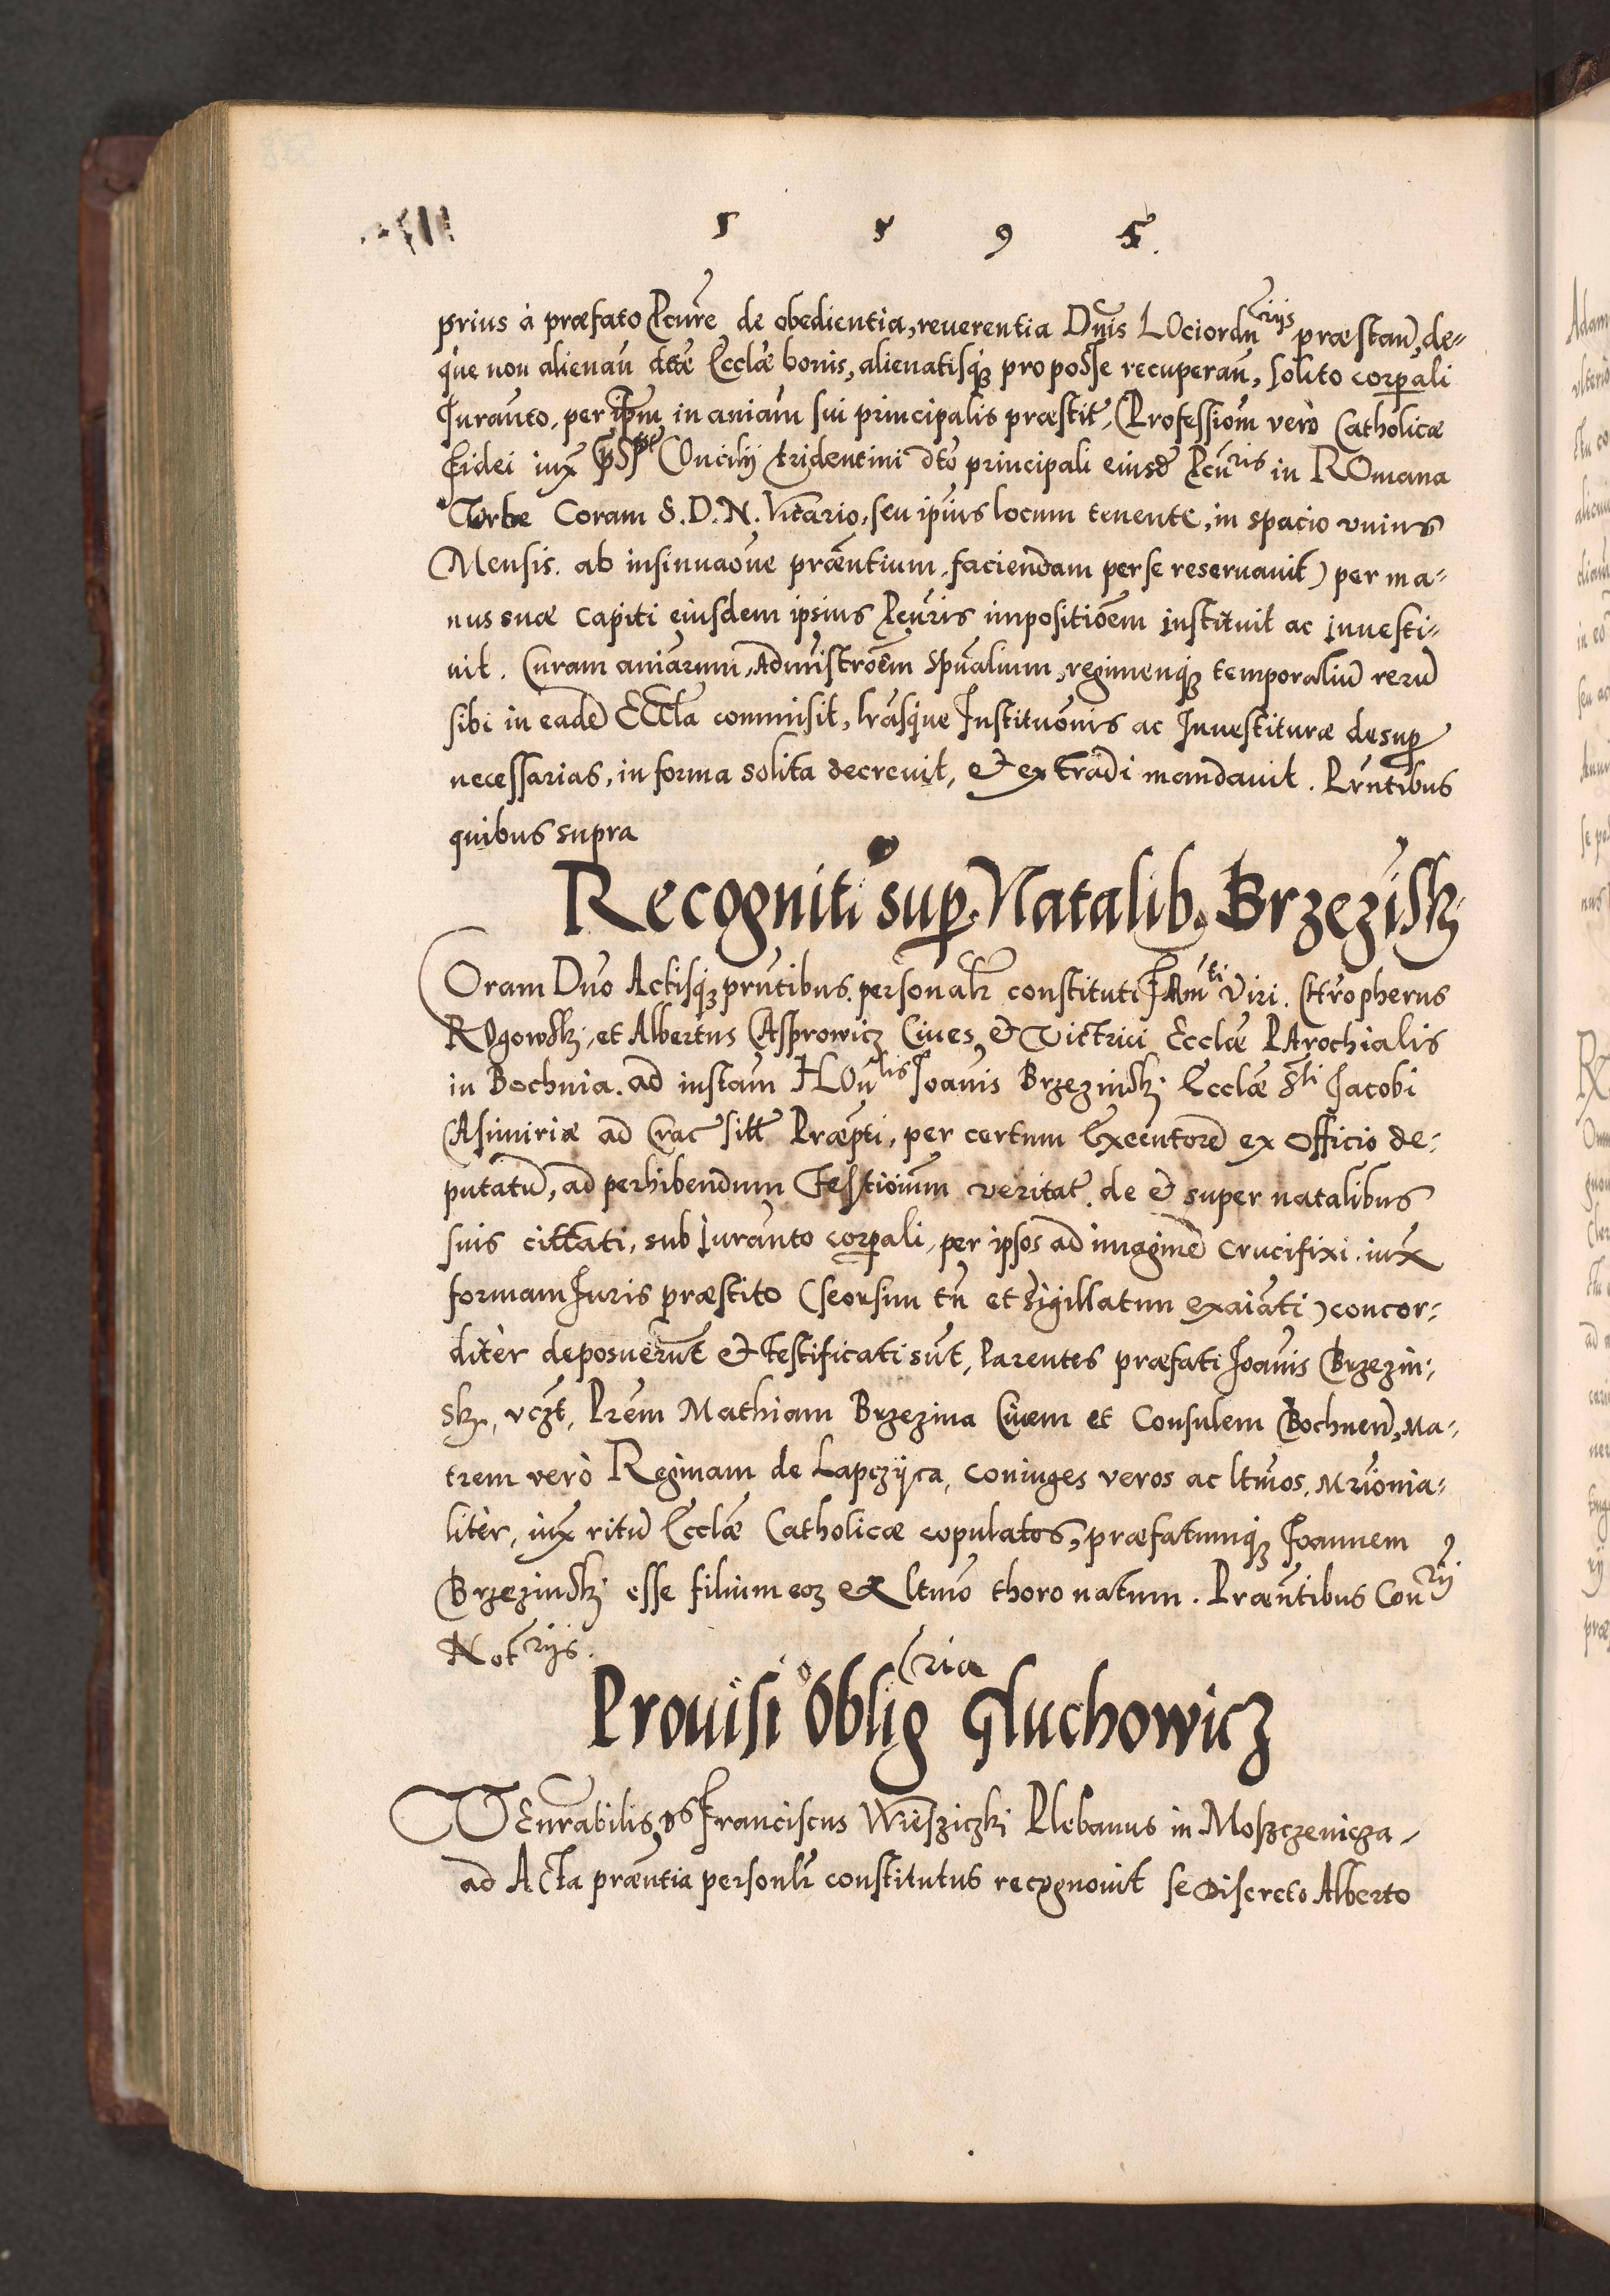 1 5 9 5.
prius à præfato Pcurē de obedientia, reuerentia Dn̄is LOciordn̄riis præstan̄, de-
q́ue non alienan̄ dtæ Ecclæ bonis, alienatisq́ꝫ pro posse recuperan̄, solito corꝑali
Juran̄to, per ipm̄ in aniam̄ sui principalis præstit̃, (Professiom̄ verò Catholicæ
fidei iux̄ Concilij tridentini dt̄o principali eiusd̄ Pcūris in ROmana
Vrbe Coram S. D. N. Vicario, seu ipius locum tenente, in spacio vnius
Mensis. ab insinuaōne præn̄tium, faciendam per se reseruauit) per ma-
nus suæ capiti eiusdem ipsius Pcūris impositiōem instituit ac inuesti-
uit. Curam aniarum, Administrōem Spūalium, regimenq́ꝫ temporaliū rerū
sibi in eadē Eccla commisit, lr̄asq́ue Institūonis ac Inuestituræ desuꝑ
necessarias, in forma solita decreuit, & extradi mandauit. Prn̄tibus
quibus supra
Recogniti͠o suꝑ Natalib. Brzeziński
COram Dn̄o Actisq́ꝫ prn̄tibus. personalr̄ constituti FAm̄ti Viri. Chr̄opherus
ROgowski, et Albertus CAsprowicz Ciues & Victrici Ecclæ PArochialis
in Bochnia. ad instam̄ HOn̄lis Joan̄is Brzezinski Ecclæ Sti Jacobi
CAsimiriæ ad Crac̄ sitt̄ Præpti, per certum Executorē ex officio de-
putatū, ad perhibendum Testioium veritat̃. de & super natalibus
suis cittati, sub juran̄to corꝑali, per ipsos ad imaginē Crucifixi. iux̄
formam Juris præstito (seorsim tn̄ et sigillatim exaiati) concor-
ditèr deposuerun̄t & testificati sūt, Parentes præfati Joan̄is Brzezin-
ski, vczt, Prēm Mathiam Brzezina Ciuem et Consulem Bochnen̄, Ma-
trem verò Reginam de Lapczyca, coniuges veros ac ltm̄os, Mr̄ionia-
litèr, iux̄ ritū Ecclæ Catholicæ copulatos, præfatumq́ꝫ Joannem
Brzezinski esse filium eoꝝ ex ltm̄o thoro natum. Præn̄tibus Con̄rij
Not̄riis.
Prouisi͠o Obligria Gluchowicz
VEnrabilis, Ds Franciscus Wiesziczki Plebanus in Moszczenicza
ad Acta præn̄tia personlr̄ constitutus recognouit se Discreto Alberto